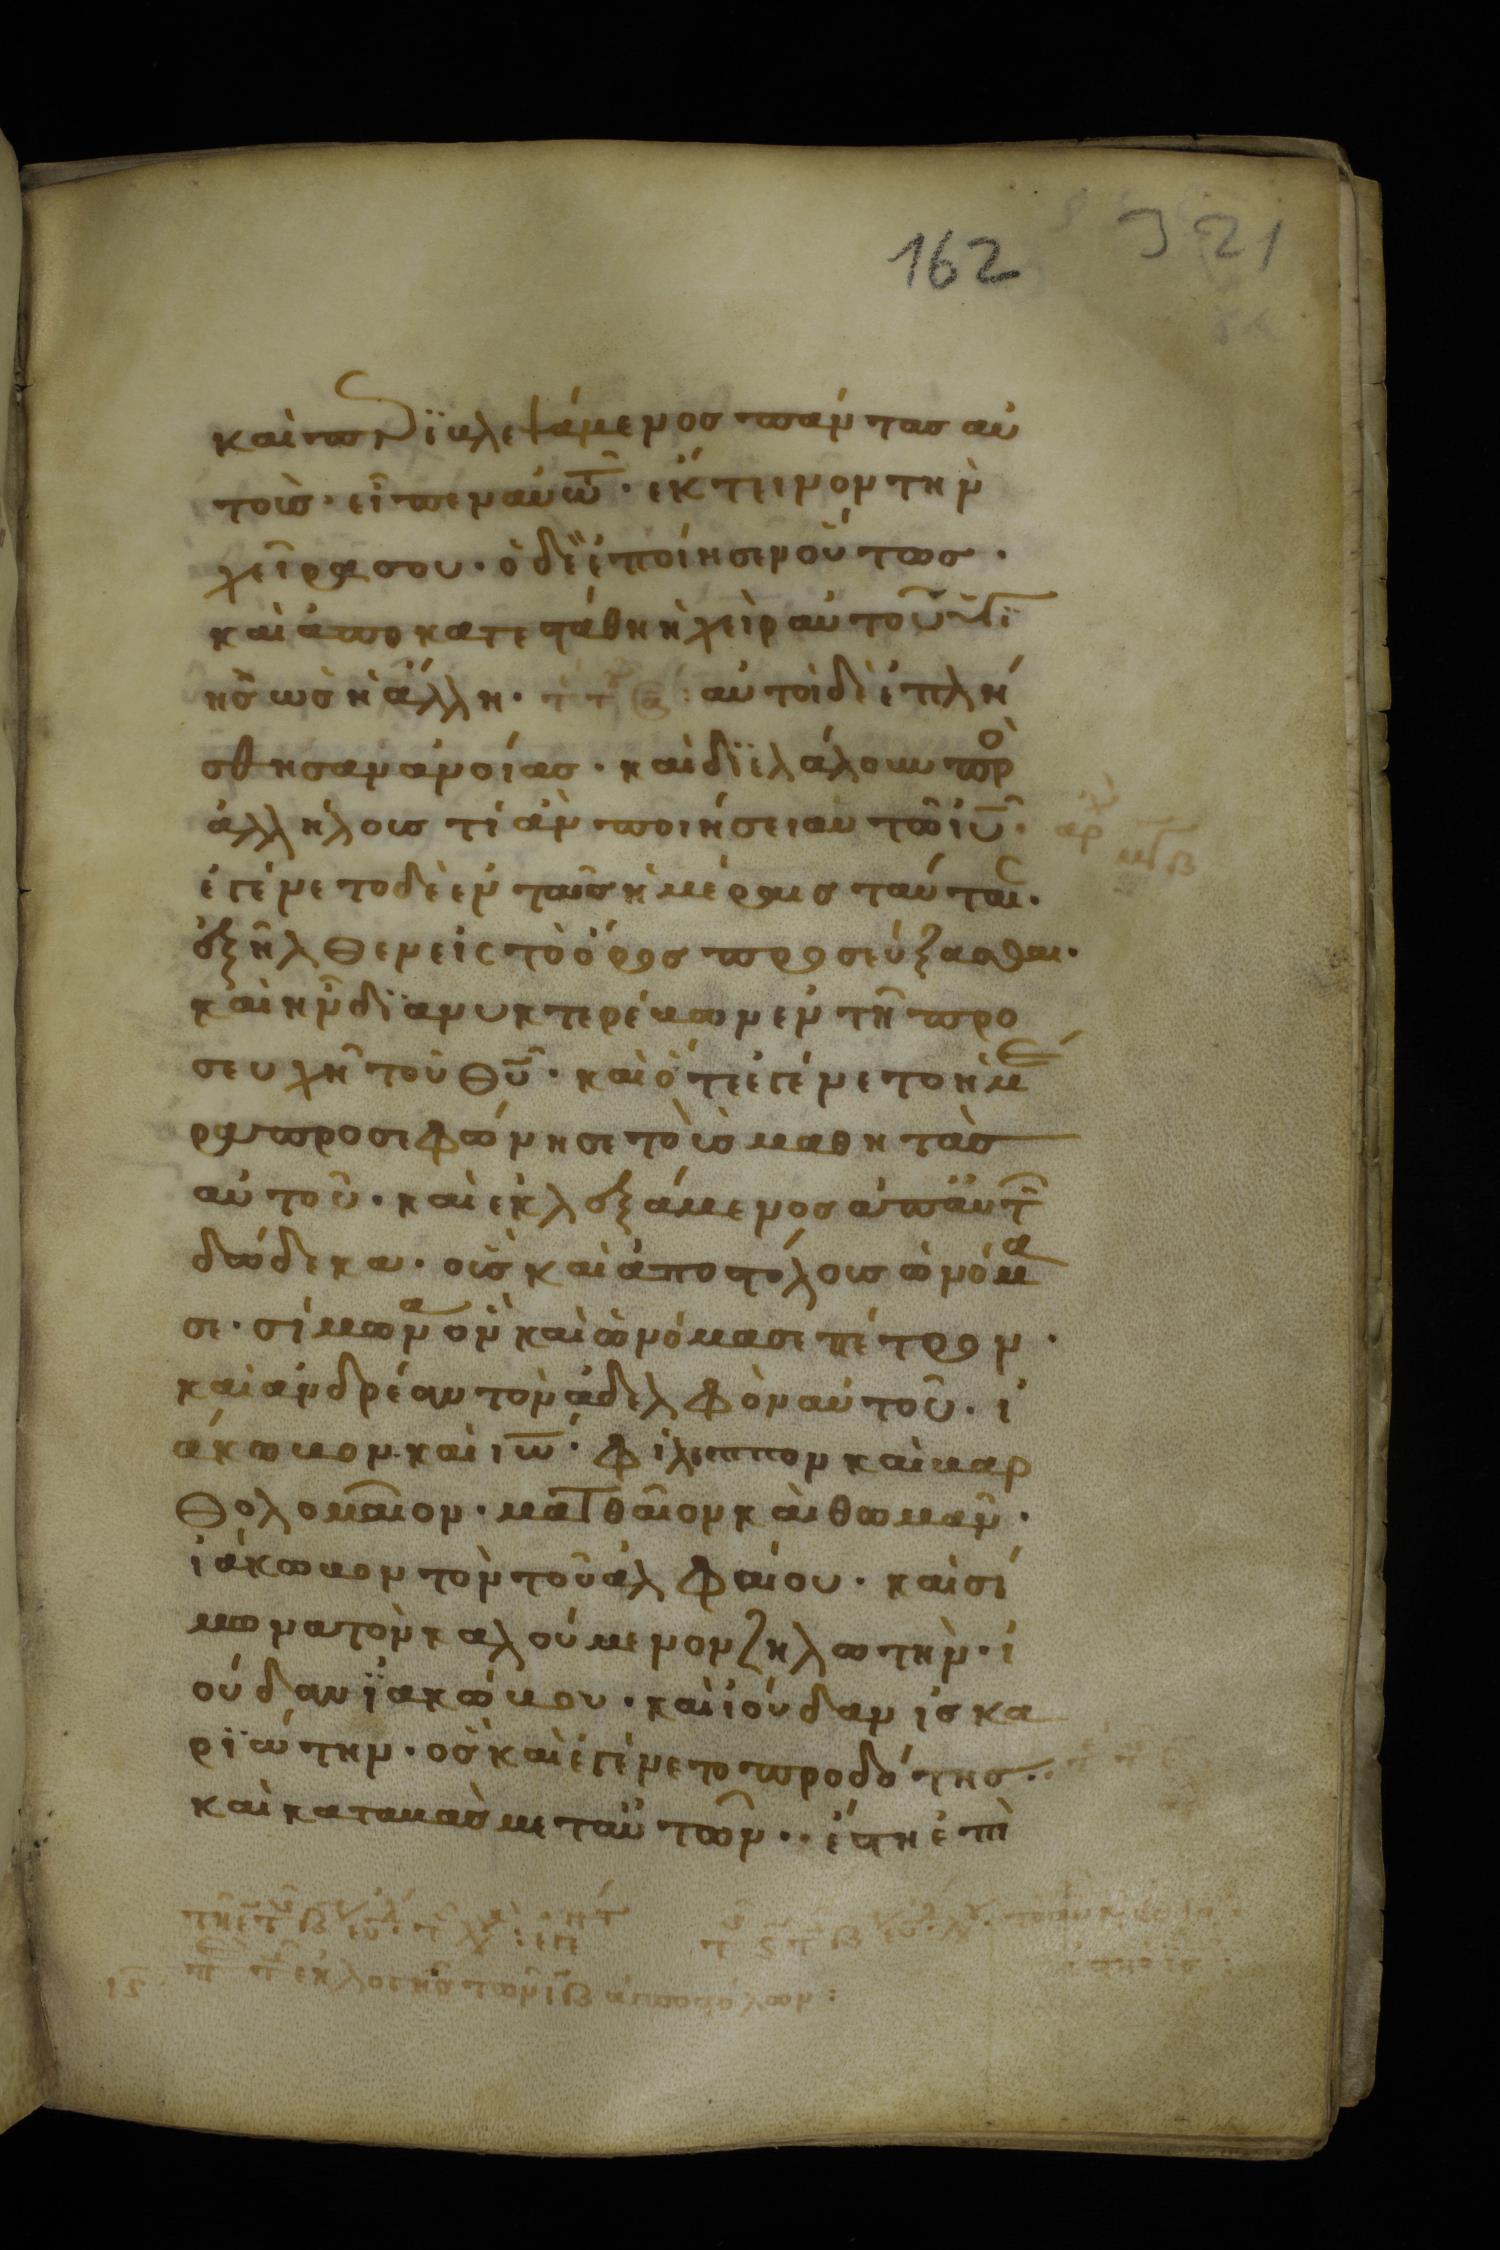 162
321
καὶ περϊβλεψάμενος πάντας αὐ
τοὺς· εἶπεν αὐτῶ· ἔκτεινον τὴν
χεῖρα σου· ὁ δὲ ἐποίησεν οὕτως·
καὶ ἀποκατεστάθη ἡ χεὶρ αὐτοῦ ὑγϊ
ης ὡς ἡ ἄλλη· αὐτοὶ δὲ ἐπλή
σθησαν ἀνοίας· καὶ δϊελάλουν πρὸ
ἀλλήλους τί ἂν ποιήσειαν τῶ ἰυ·
ἐγένετο δὲ ἐν ταῖς ἡμέραις ταύταις·
ἐξῆλθεν εἰς τὸ ὄρος προσεύξασθαι·
καὶ ἦν δϊανυκτερεύων ἐν τῆ προ
σευχῆ τοῦ θυ· καὶ ὅτε ἐγένετο ἡμέ
ρα προσεφώνησε τοὺς μαθητὰς
αὐτοῦ· καὶ ἐκλεξάμενος ἀπ' αὐτῶν
δώδεκα· οὓς καὶ ἀποστόλους ὠνόμα
σε· σίμωνα ὃν καὶ ὠνόμασε πέτρον·
καὶ ἀνδρέαν τὸν ἀδελφὸν αὐτοῦ· ἰ
άκωβον καὶ ιω· φίλιππον καὶ βαρ
θολομαῖον· ματθαῖον καὶ θωμᾶν·
ἰάκωβον τὸν τοῦ ἀλφαίου· καὶ σί
μωνα τὸν καλούμενον ζηλωτὴν· ἰ
ούδαν ϊακώβου· καὶ ἰούδαν ἰσκα
ρϊώτην· ὃς καὶ ἐγένετο προδότης··
καὶ καταβὰς μετ' αὐτῶν·· ἔστη ἐπὶ